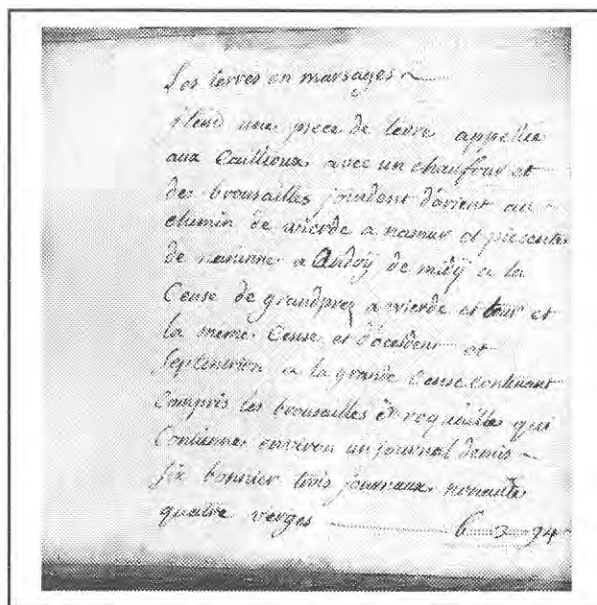 Les terres en marsages
Item une piece de terre appellée
aux Caillioux avec un chaufour et
des brousailles joindent d'orient au
chemin de wierde a namur et piesente
de naninne a Andoÿ de midÿ a la
Cense de grandprez a wierde et tour et
la meme Cense et d'occident et
septentrion a la grande Cense contenant
compris les brousailles & roquailles qui
Contienne environ un journal demis
six bonnier trois journaux nonante
quatre verges 6 3 94